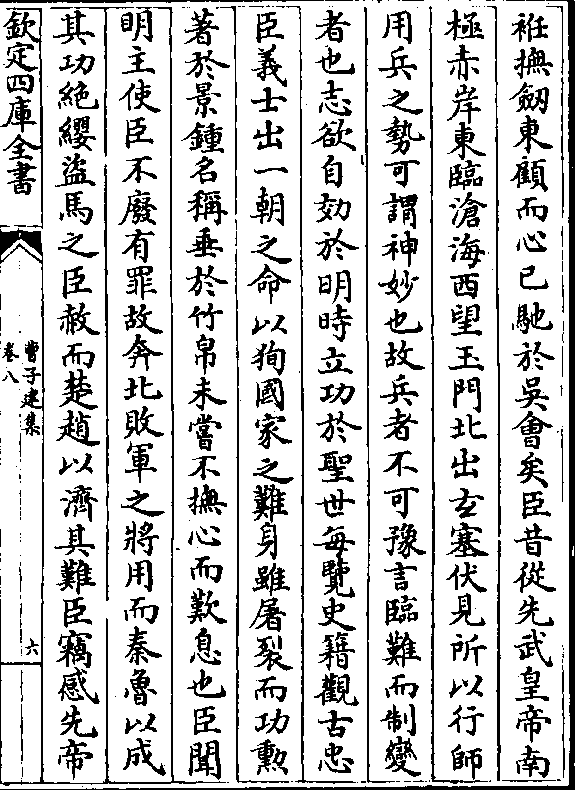 袵撫劒東顧而心已馳於吳會矣臣昔從先武皇帝南
極赤岸東臨滄海西望玉門北出玄塞伏見所以行師
用兵之勢可謂神妙也故兵者不可豫言臨難而制變
者也志欲自効於明時立功於聖世每覽史籍觀古忠
臣義士出一朝之命以狥國家之難身雖屠裂而功勲
著於景鍾名稱垂於竹帛未嘗不撫心而歎息也臣聞
明主使臣不廢有罪故奔北敗軍之將用而秦魯以成
其功絶纓盜馬之臣赦而楚趙以濟其難臣竊感先帝
欽定四庫全書
曹子建集
卷八
六